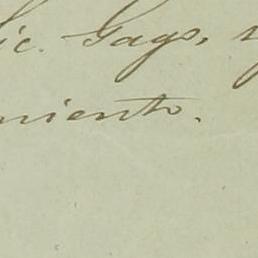 ic. Gago,
miento.